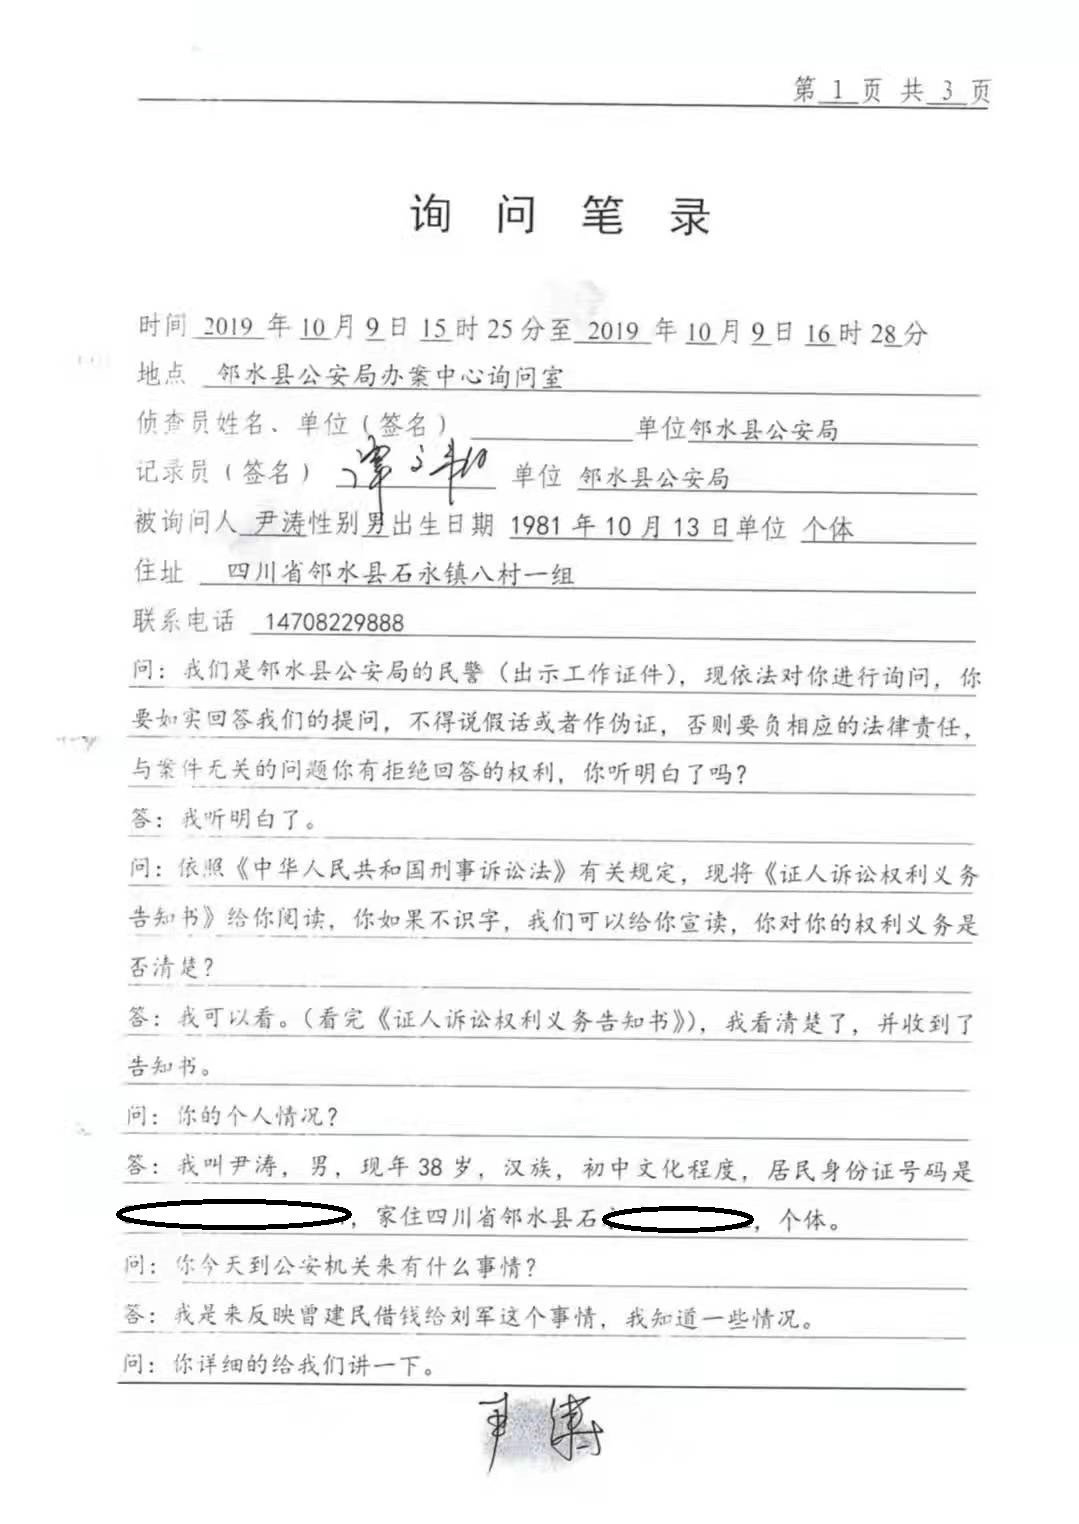 第 1 页 共 3 页
询 问 笔 录
时间 2019 年 10 月 9 日 15 时 25 分至 2019 年 10 月 9 日 16 时 28 分
地点 邻水县公安局办案中心询问室
侦查员姓名、单位（签名） 单位邻水县公安局
记录员（签名） 单位 邻水县公安局
被询问人 尹涛性别男出生日期 1981 年 10 月 13 日单位 个体
住址 四川省邻水县石永镇八村一组
联系电话 14708229888
问：我们是邻水县公安局的民警（出示工作证件），现依法对你进行询问，你
要如实回答我们的提问，不得说假话或者作伪证，否则要负相应的法律责任，
与案件无关的问题你有拒绝回答的权利，你听明白了吗？
答：我听明白了。
问：依照《中华人民共和国刑事诉讼法》有关规定，现将《证人诉讼权利义务
告知书》给你阅读，你如果不识字，我们可以给你宣读，你对你的权利义务是
否清楚？
答：我可以看。（看完《证人诉讼权利义务告知书》），我看清楚了，并收到了
告知书。
问：你的个人情况？
答：我叫尹涛，男，现年 38 岁，汉族，初中文化程度，居民身份证号码是
，家住四川省邻水县石，个体。
问：你今天到公安机关来有什么事情？
答：我是来反映曾建民借钱给刘军这个事情，我知道一些情况。
问：你详细的给我们讲一下。
尹涛